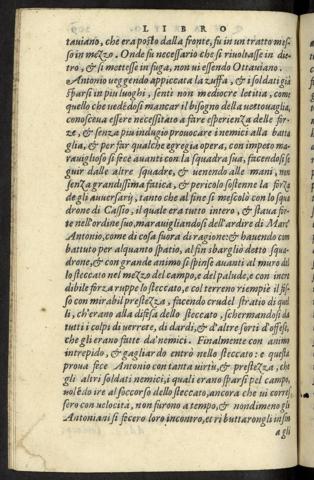 LIBRO
tauiano, che era posto dalla fronte, fu in un tratto mes⸗
so in mezzo. Onde fu necessario che si riuoltasse in die⸗
tro, & si mettesse in fuga, non ui essendo Ottauiano.
e Antonio ueggendo appiccata la zuffa, & i soldati già
sparsi in piu luoghi, senti non mediocre letitia, come
quello che uedēdosi mancar il bisogno della vettouaglia,
conosceua essere necessitato a fare esperienza delle for⸗
ze, & senza piu indugio prouocare i nemici alla batta
glia, & per far qualche egregia opera, con impeto ma⸗
rauiglioso si fece auanti con la squadra sua, facendosi se
guir dalle altre squadre, & uenendo alle mani, non
senza grandissima fatica, & pericolo sostenne la forza
de gli auuersarij, tanto che al fine si mescolò con lo squa
drone di Cassio, il quale era tutto intero, & staua for⸗
te nell'ordine suo, marauigliandosi dell'ardire di Marc'
Antonio, come di cosa fuora di ragione: & hauendo com
battuto per alquanto spatio, al fin sbarigliò detto squa⸗
drone, & con grande animo si spinse auanti al muro del
lo steccato nel mezzo del campo, e del palude, e con incre
dibile forza ruppe lo steccato, e col terreno riempiè il fos⸗
so con mirabil prestezza, facendo crudel stratio di quel
li, ch'erano alla difesa dello steccato, schermendosi da
tutti i colpi di uerrete, di dardi, & d'altre sorti d'offese,
che gli erano fatte da'nemici. Finalmente con animo
intrepido, & gagliardo entrò nello steccato: e questa
proua fece Antonio con tanta uirtù, & prestezza, che
gli altri soldati nemici, i quali erano sparsi pel campo,
uolēdo ire al soccorso dello steccato, ancora che ui corres⸗
sero con uelocità, non furono a tempo, & nondimeno gli
Antoniani si fecero loro incontro, et ributtarongli insin
a gli